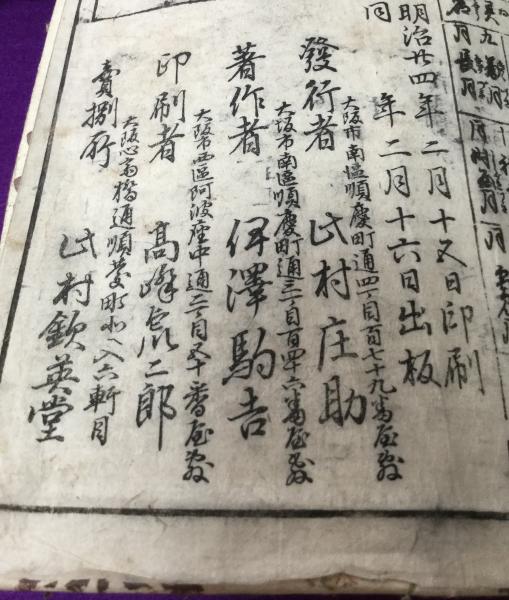 明治廿四年二月十五日印刷
同年二月十六日出板
大阪市南區順慶町通四丁目百七十九番屋敷
發行者 此村庄助
大坂市南區順慶町通三丁目百四十六番屋敷
著作者 伊澤駒吉
大阪市西區阿波座中通二丁目五十番屋敷
印刷者 高峰虎二郎
大阪心斎橋通順慶町北へ入六軒目
賣捌所 此村欽英堂